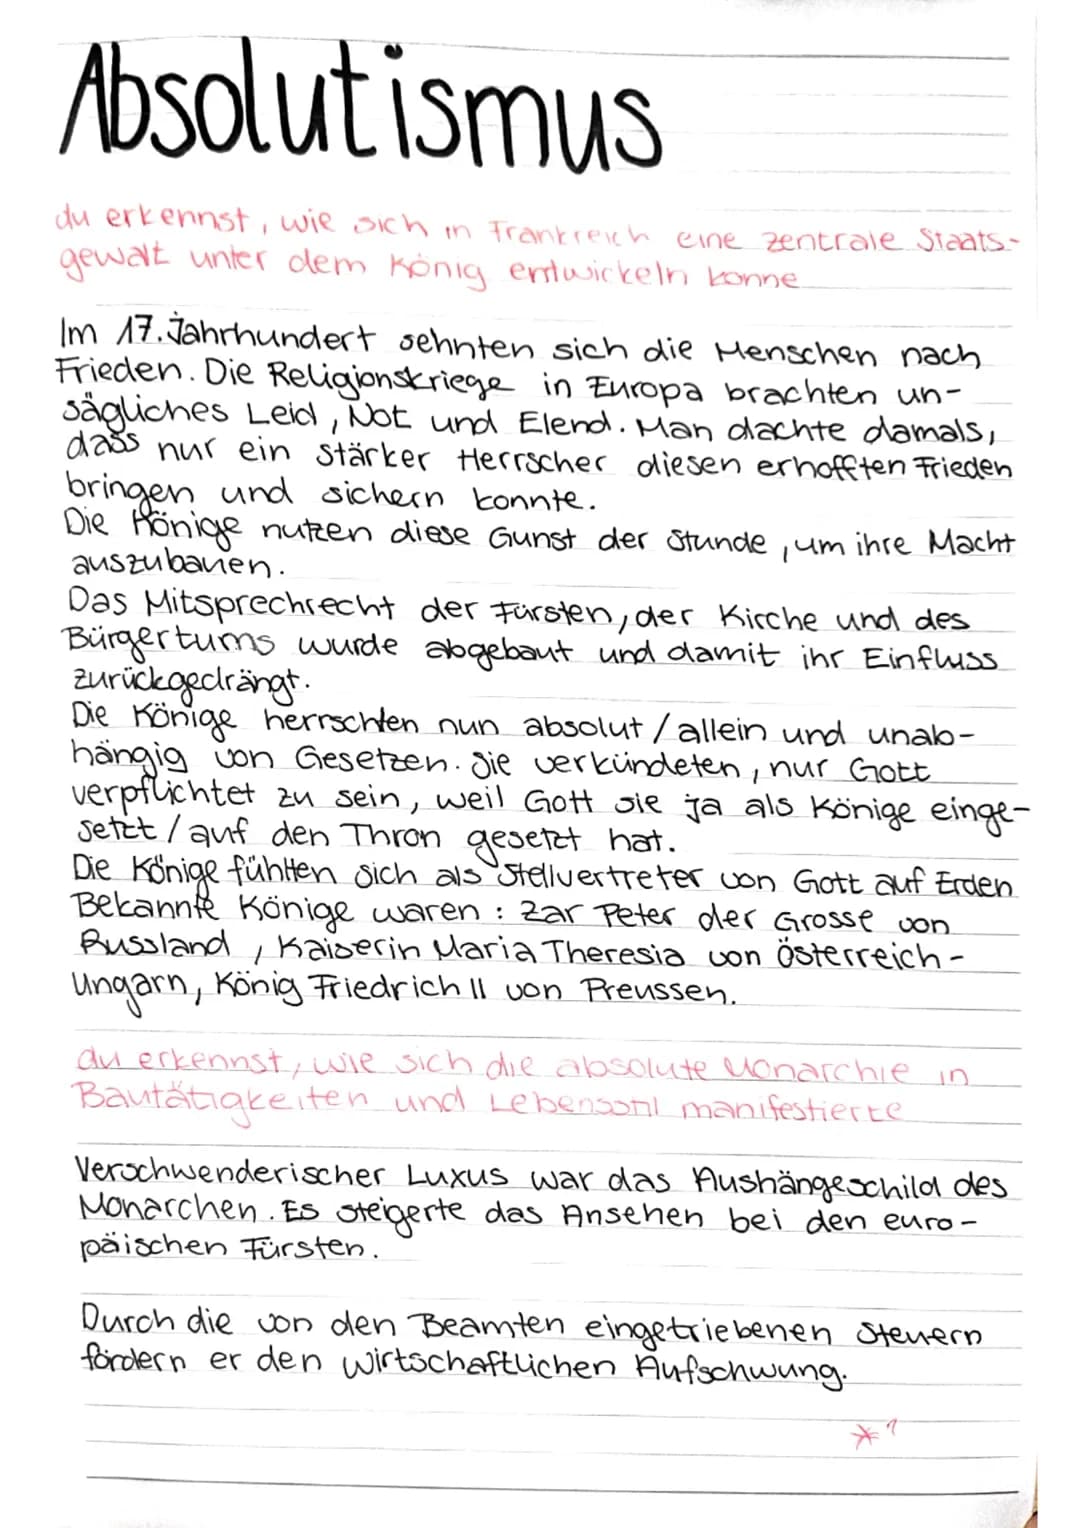 Absolutismus
du erkennst, wie sich in Frankreich eine zentrale Staats-
gewalt unter dem König entwickeln konne
Im 17. Jahrhundert sehnten sich die Menschen nach
Frieden. Die Religionskriege in Europa brachten un-
sägliches Leid, Not und Elend. Man dachte damals,
dass nur ein stärker Herrscher diesen erhofften Frieden
bringen und sichern konnte.
Die Könige nutzen diese Gunst der Stunde, um ihre Macht
auszubauen.
Das Mitsprechrecht der Fürsten, der Kirche und des
Bürgertums wurde abgebaut und damit ihr Einfluss
zurückgedrängt.
Die Könige herrschten nun absolut / allein und unab-
hängig von Gesetzen. Sie verkündeten, nur Gott
verpflichtet zu sein, weil Gott sie ja als Könige einge-
setzt / auf den Thron gesetzt hat.
Die Könige fühlten sich als Stellvertreter von Gott auf Erden
Bekannte Könige waren: Zar Peter der Grosse von
Russland, Kaiserin Maria Theresia von Österreich-
Ungarn, König Friedrich II von Preussen.
du erkennst, wie sich die absolute Monarchie in
Bautätigkeiten und Lebensstil manifestierte
Verschwenderischer Luxus war das Aushängeschild des
Monarchen. Es steigerte das Ansehen bei den euro-
päischen Fürsten.
Durch die von den Beamten eingetriebenen Steuern
fördern er den wirtschaftlichen Aufschwung.
*1